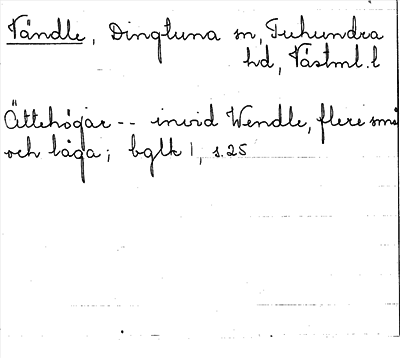 Vändle, Dingtuna sn, Tuhundra
hd, Västml. l
Ättehögar -- invid Wendle, flere små
och låga; bglk 1, s. 25